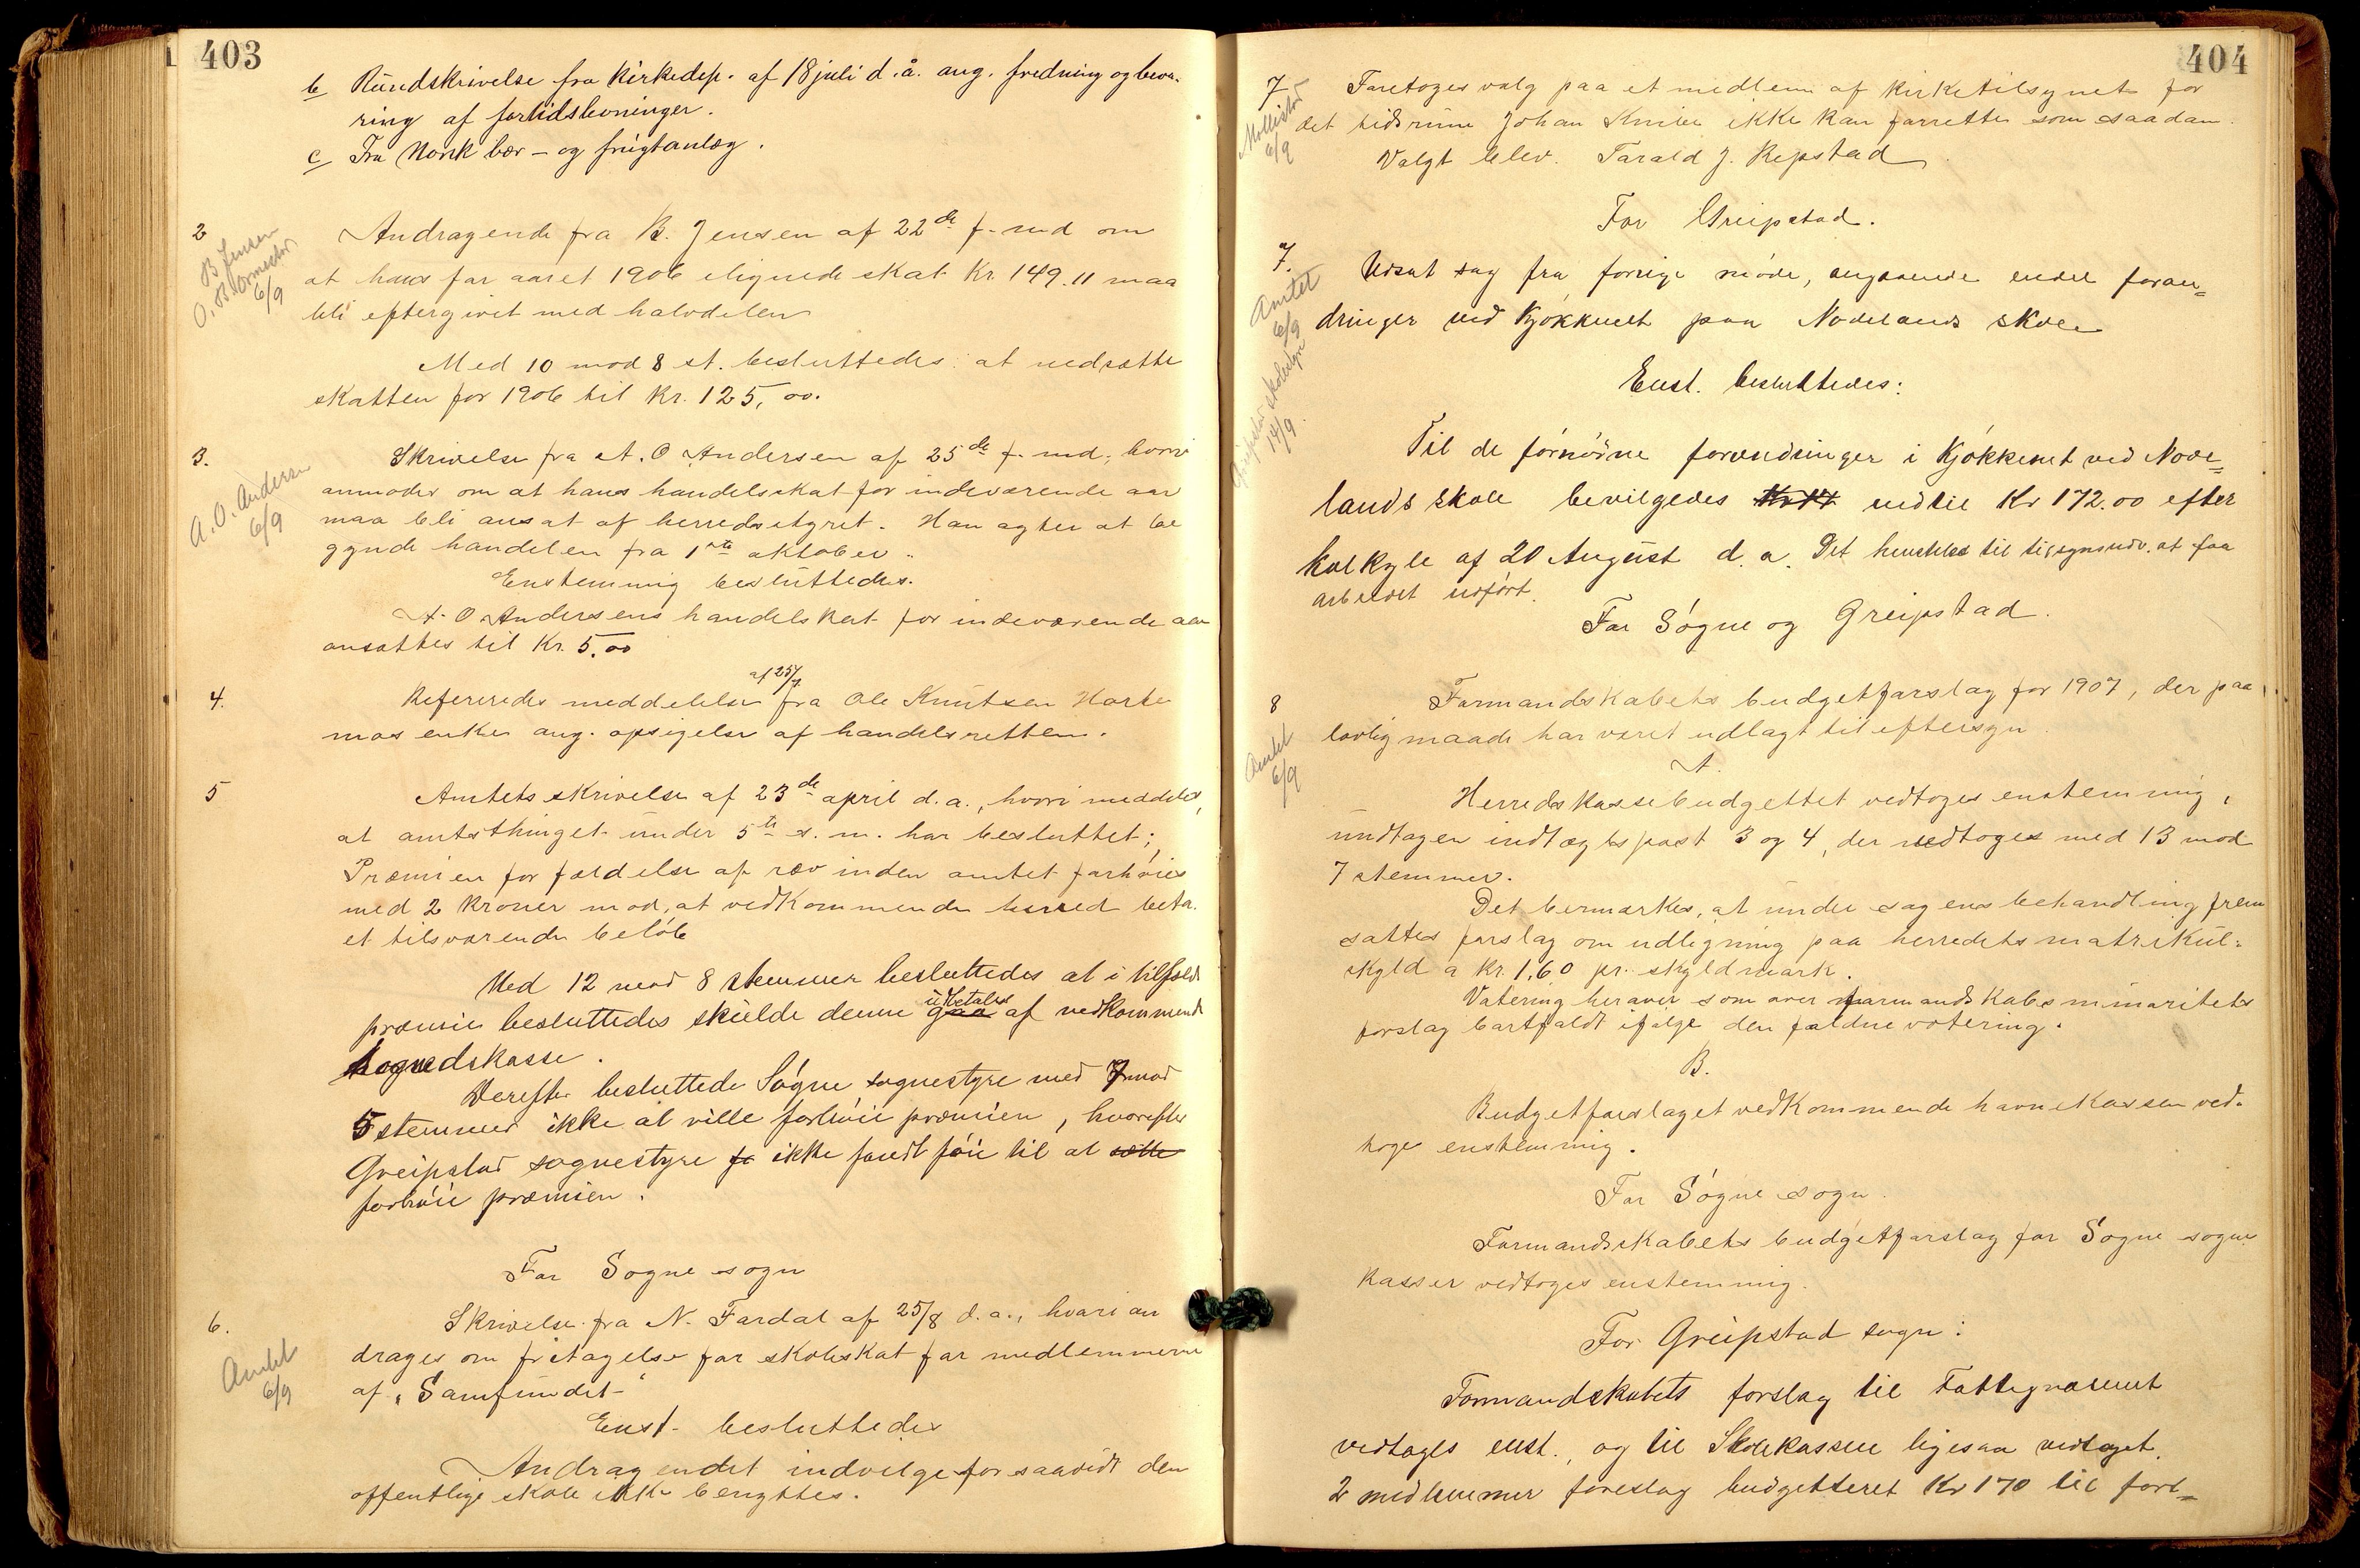 403
b Rundskrivelse fra Kirkedep. af 18 juli d.å. ang. fredning og beva-
ring af fortidslevninger.
c Fra Norsk bær- og frugtanlæg.
2
B Jensen
O. B. Ormestad
6/9
Andragende fra B. Jensen af 22de f. md om
at hans for aaret 1906 elignede skat Kr. 149.11 maa
bli eftergivet med halvdelen
Med 10 mod 8 st. besluttedes at nedsætte
skatten for 1906 til Kr. 125,00.
3.
A. O. Andersen
6/9
Skrivelse fra A. O Andersen af 25de f. md, hvori
anmodes om at hans handelsskat for indeværende aar
maa bli ansat af herredsstyret. Han agter at be
gynde handelen fra 1ste oktober.
Enstemmig besluttedes.
A. O Andersens handelskat for indeværende aar
ansattes til Kr. 5.00
4.
af 25/7
Refereredes meddelelse fra Ole Knutsen Horke
mos enke ang. opsigelse af handelsretten.
5
Amtets skrivelse af 23de april d.a., hvori meddeles,
at amtsthinget under 5te s. m. har besluttet;
Præmien for fældelse af ræv inden amtet forhøies
med 2 kroner mod, at vedkommende herred beta.
et tilsvarende beløb
Med 12 mod 8 stemmer besluttedes at i tilfælde
præmie besluttedes skulde denne gaa udbetales af vedkommende
sognedskasse.
Derefter besluttede Søgne sognestyre med 7 mod
5 stemmer ikke at ville forhøie præmien, hvorefter
Greipstad sognestyre fa ikke fandt føie til at sætte
forhøie præmien.
For Søgne sogn
6.
Amtet
6/9
Skrivelse fra N. Fardal af 25/8 d.a., hvori an
drages om fritagelse for skoleskat for medlemmerne
af "Samfundet"
Enst. besluttedes
Andragendet indvilges forsaavidt den
offentlige skole ikke benyttes.
404
7
6/9
Foretoges valg paa et medlem af kirketilsynet for
det tidsrum Johan Knibe ikke kan forrette som saadan.
Valgt blev. Tarald J. Repstad
For Greipstad.
7.
Amtet
6/9
Greipstad skolestyre
14/9.
Udsat sag fra forrige møde, angaaende endel foran-
dringer ved Kjøkkenet paa Nodelands skole
Enst. besluttedes:
Til de fornødne forandringer i Kjøkkenet ved Node-
lands skole bevilgedes indtil Kr 172.00 efter
kalkyle af 20 August d.a. Det henstilles til tilsynsudv. at faa
arbeidet udført.
For Søgne og Greipstad.
8
Amtet
6/9
Formandskabets budgetforslag for 1907, der paa
lovlig maade har været udlagt til eftersyn.
A.
Herredskassebudgettet vedtoges enstemmig,
undtagen indtægtspost 3 og 4, der vedtoges med 13 mod
7 stemmer.
Det bemærkes, at under sagens behandling frem
sattes forslag om udligning paa herredets matrikul-
skyld a kr. 1.60 pr. skyldmark.
Votering herover som over formandskabsminoritets
forslag bortfaldt ifølge den faldne votering.
B.
Budgetforslaget vedkommende havnekassen ved-
toges enstemmig.
For Søgne sogn.
Formandskabets budgetforslag for Søgne sogns
kasser vedtoges enstemmig.
For Greipstad sogn:
Formandskabets forslag til Fattigvæsenet
vedtoges enst., og til Skolekassen ligesaa vedtaget.
2 medlemmer foreslog budgetteret Kr 170 til fort-